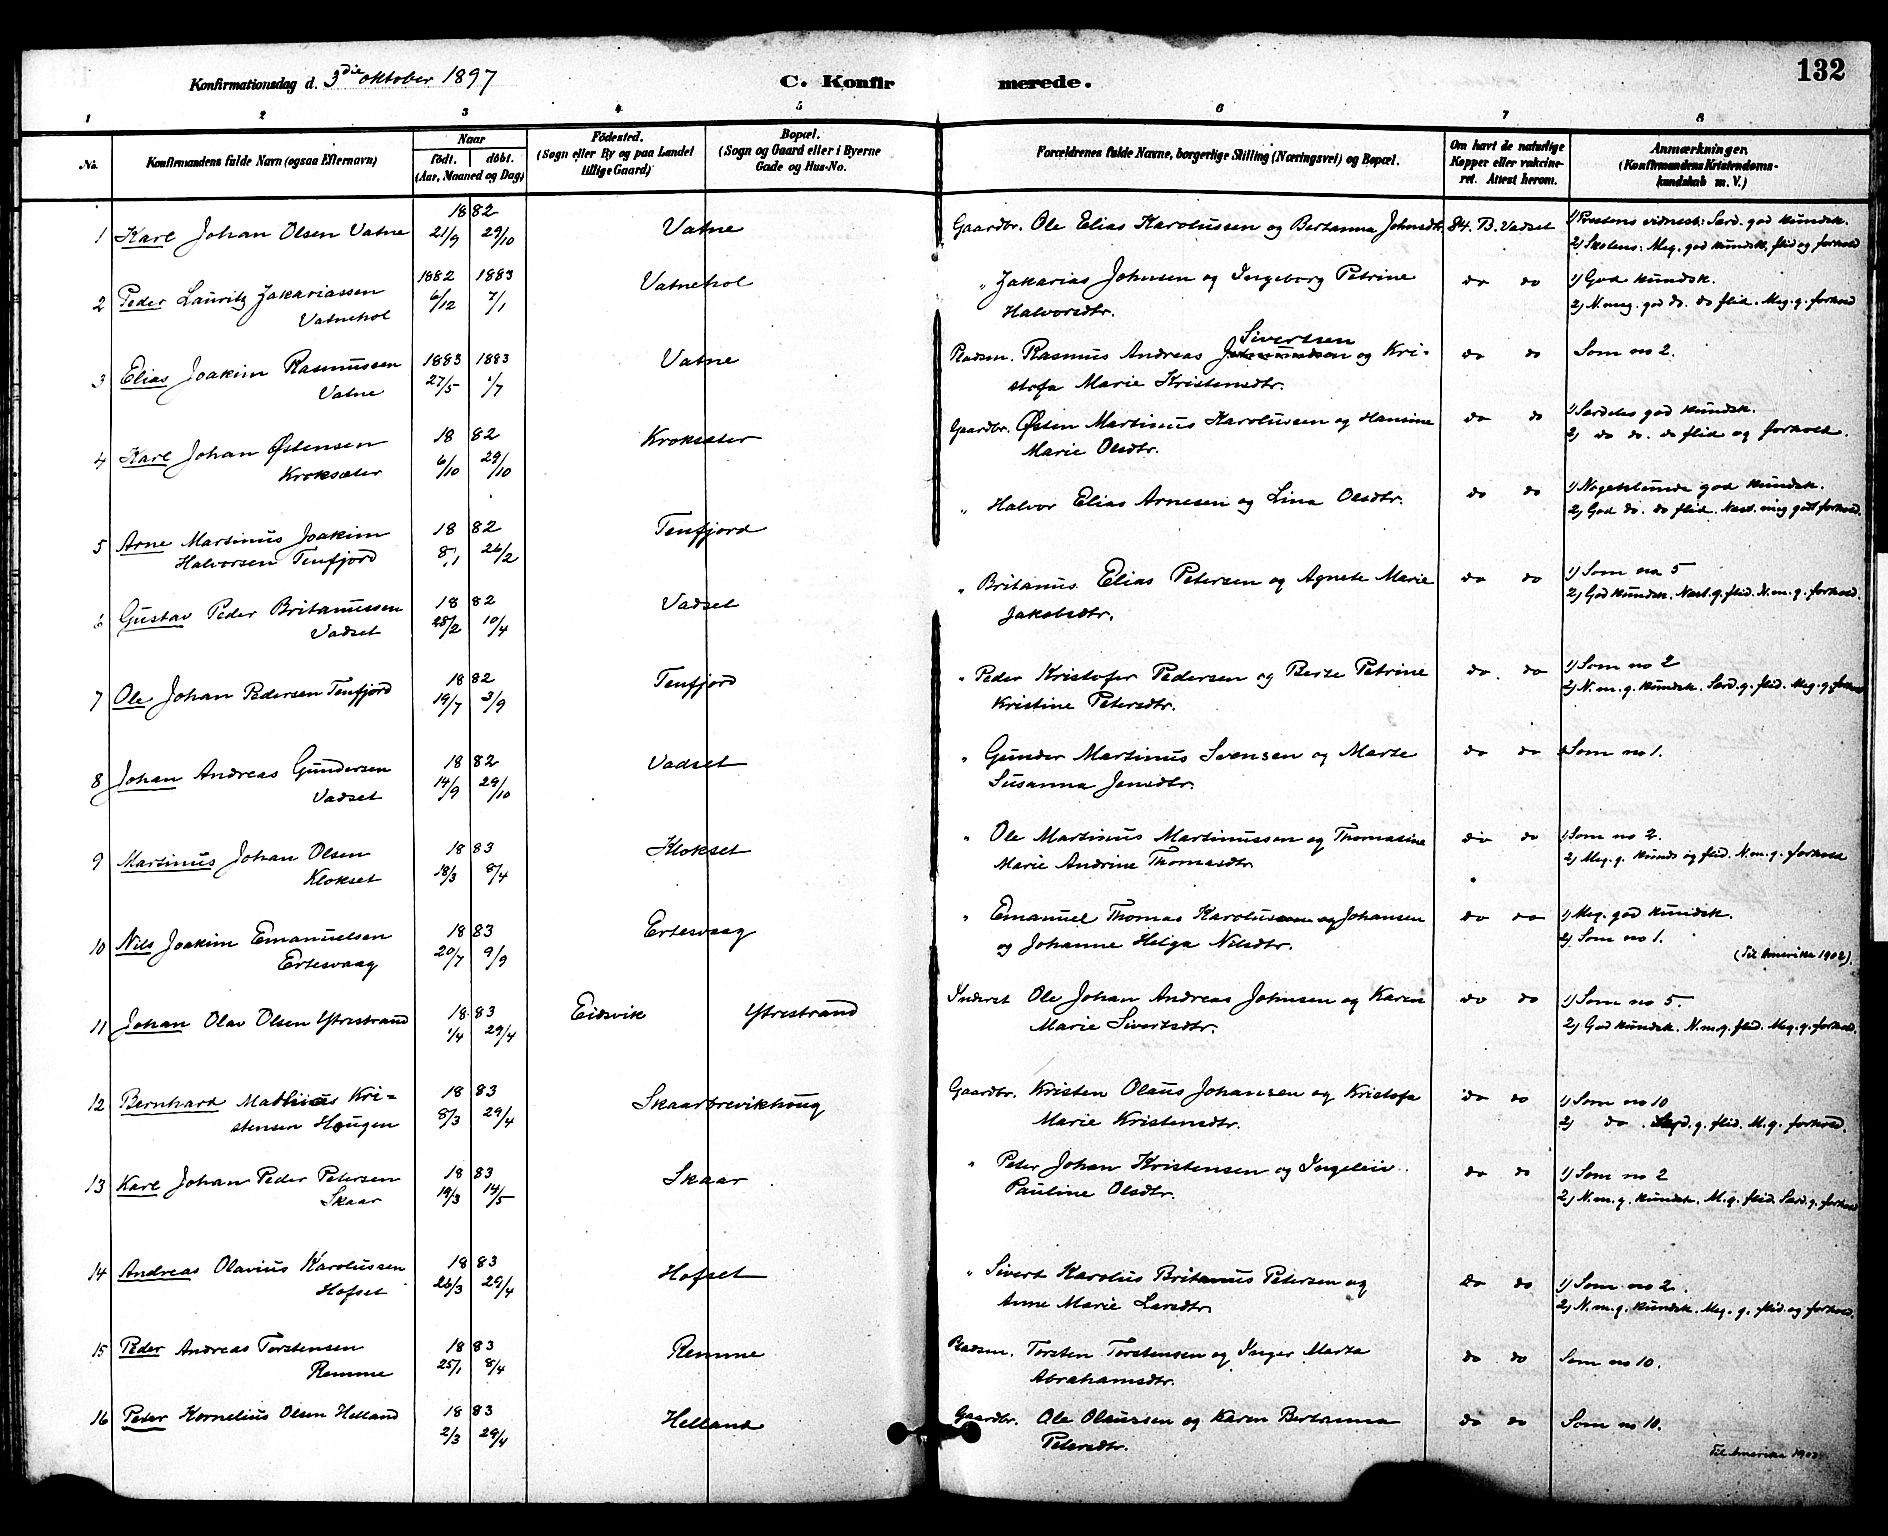 Konfirmationsdag d. 3die oktober 1897
C. Konfirmerede.
132
1 2 3 4 5 6 7 8
No.
Konfirmandens fulde Navn (ogsaa Efternavn)
Naar
födt. döbt.
(Aar, Maaned og Dag)
Födested.
(Sogn eller By og paa Landet
tillige Gaard)
Bopæl.
(Sogn og Gaard eller i Byerne
Gade og Hus-No.
Forældrenes fulde Navne, borgerlige Stilling (Næringsvei) og Bopæl.
Om havt de naturlige
Kopper eller vakcine-
ret. Attest herom.
Anmærkninger,
(Konfirmandens Kristendoms-
kundskab m. V.)
1 Karl Johan Olsen Vatne 1882 21/9 29/10 Vatne Gaardbr. Ole Elias Karolussen og Bertanna Johnsdtr. 84. B. Vadset 1) Prestens vidnesb: Særd. god kundsk.
2) Skolens: Meg. god kundsk, flid og forhold
2 Peder Lauritz Zakariassen 1882 1883 6/12 7/1 Vatnehol " Zakarias Johnsen og Ingeborg Petrine do do 1) God kundsk.
Vatnehol Halvorsdtr. 2) N. meg. god do. do flid. Meg. g. forhold
3 Elias Joakim Rasmussen 1883 1883 27/5 1/7 Vatne Pladsm. Rasmus Andreas Sivertsen og Kri- do do Som no 2.
Vatne stofa Marie Kristensdtr.
4 Karl Johan Østensen 1882 6/10 29/10 Kroksæter Gaardbr. Østen Martinus Karolussen og Hansine do do 1) Særdeles god kundsk.
Kroksæter Marie Olsdtr. 2) do do. do flid og forhold.
5 Arne Martinus Joakim 1882 8/1 26/2 Tenfjord " Halvor Elias Arnesen og Lina Olsdtr. do do 1) Nogenlunde god kundsk.
Halvorsen Tenfjord 2) God do. do flid. Næst. meg godt forhold.
6 Gustav Peder Britanussen 1882 28/2 10/4 Vadset " Britanus Elias Petersen og Agnete Marie do do 1) Som no 5
Vadset Jakobsdtr. 2) God kundsk. Næst. g. flid. N. m. g. forhold.
7 Ole Johan Pedersen Tenfjord 1882 19/7 3/9 Tenfjord " Peder Kristofer Pedersen og Berte Petrine do do 1) Som no 2
Kristine Petersdtr. 2) N. m. g. kundsk. Særd. g. flid. Meg. g. forhold
8 Johan Andreas Gundersen 1882 14/9 29/10 Vadset " Gunder Martinus Svensen og Marte do do Som no 1.
Vadset Susanna Jensdtr.
9 Martinus Johan Olsen 1883 18/3 8/4 Klokset " Ole Martinus Martinussen og Thomasine do do 1) Som no 2.
Klokset Marie Andrine Thomasdtr. 2) Meg. g. kunds og flid. N. m. g. forhold
10 Nils Joakim Emanuelsen 1883 20/7 9/9 Ertesvaag " Emanuel Thomas Karolus Johansen do do 1) Meg. god kundsk.
Ertesvaag og Johanne Helga Nilsdtr. 2) Som no 1.
(Til Amerika 1902).
11 Johan Olav Olsen Ytrestrand 1883 1/4 29/4 Eidsvik Ytrestrand Inderst Ole Johan Andreas Johnsen og Karen do do 1) Som no 5.
Marie Sivertsdtr. 2) God kundsk. N. m. g. flid. Meg. g. forhold.
12 Bernhard Mathias Kri- 1883 8/3 29/4 Skaarbrevikhoug Gaardbr. Kristen Olaus Johansen og Kristofa do do 1) Som no 10
stensen Haugen Marie Kristensdtr. 2) do. Særd. g. flid. M. g. forhold.
13 Karl Johan Peder Petersen 1883 19/3 14/5 Skaar " Peter Johan Kristensen og Ingeleiv do do 1) Som no 2
Skaar Pauline Olsdtr. 2) N. m. g. kundsk. M. g. flid. Særd. g. forhold
14 Andreas Olavius Karolussen 1883 26/3 29/4 Hofset " Sivert Karolus Britanus Petersen og do do 1) Som no 2.
Hofset Anne Marie Larsdtr. 2) N. m. g. kundsk. Meg. g. flid og forhold.
15 Peder Andreas Torstensen 1883 25/1 8/4 Remme Pladsm. Torsten Torstensen og Inger Marta do do Som no 10.
Remme Abrahamsdtr.
16 Peter Kornelius Olsen Helland 1883 2/3 29/4 Helland Gaardbr. Ole Olaussen og Karen Bertanna do do Som no 10.
Petersdtr. Til Amerika